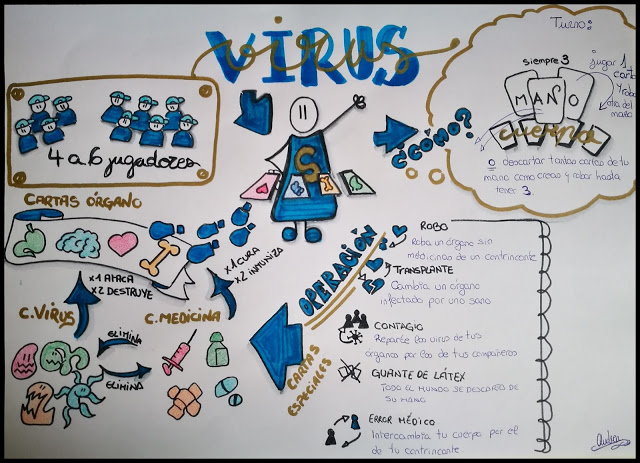 VIRUS
virus
4 a 6 jugadores
Turno:
siempre 3
jugar 1
carta
y robar
otra del
mazo
MANO
cuerpo
o descartar tantas cartas de tu
mano como creas y robar hasta
tener 3.
¿CÓMO?
CARTAS ÓRGANO
x1 ATACA
x2 DESTRUYE
x1 CURA
x2 INMUNIZA
C.VIRUS
C.MEDICINA
ELIMINA
ELIMINA
OPERACIÓN
CARTAS
ESPECIALES
ROBO
Roba un órgano sin
medicinas de un contrincante
TRANSPLANTE
Cambia un órgano
infectado por uno sano
CONTAGIO
Reparte los virus de tus
órganos por los de tus compañeros
GUANTE DE LÁTEX
TODO EL MUNDO SE DESCARTA DE
SU MANO
ERROR MÉDICO
Intercambia tu cuerpo por el
de tu contrincante